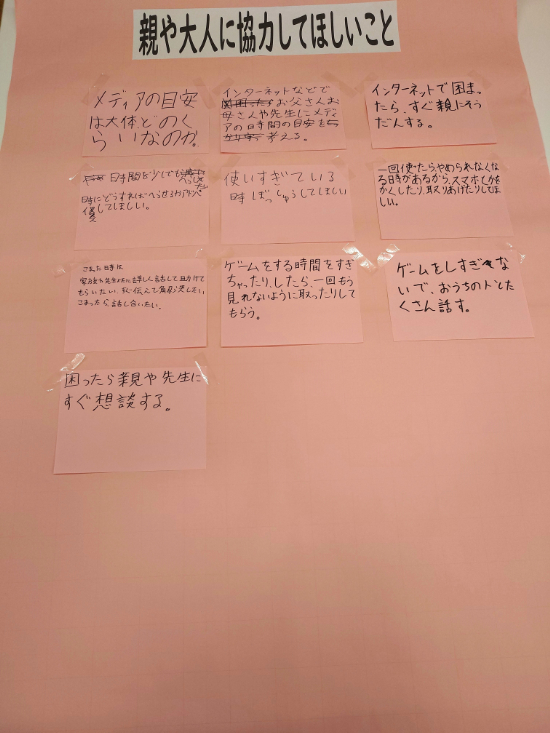 親や大人に協力してほしいこと
メディアの目安
は大体どのく
らいなのか。
インターネットなどで
お父さんお
母さんや先生にメディ
アの時間の目安を
考える。
インターネットで困まっ
たら、すぐ親にそう
だんする。
時間を少しでも
時にどうすればへらせるかアドバ
してほしい。
使いすぎている
時ぼっしゅうしてほしい
一回使ったらやめられなくな
る時があるから、スマホとかを
かくしたり、取りあげたりしてほ
しい。
こまった時に
家族や先生などに詳しく話をして助けて
もらいたい。
こまったら話し合いたい。
ゲームをする時間をすぎ
ちゃったりしたら、一回もう
見れないように取ったりして
もらう。
ゲームをしすぎない
で、おうちの人とた
くさん話す。
困ったら親や先生に
すぐ想談する。